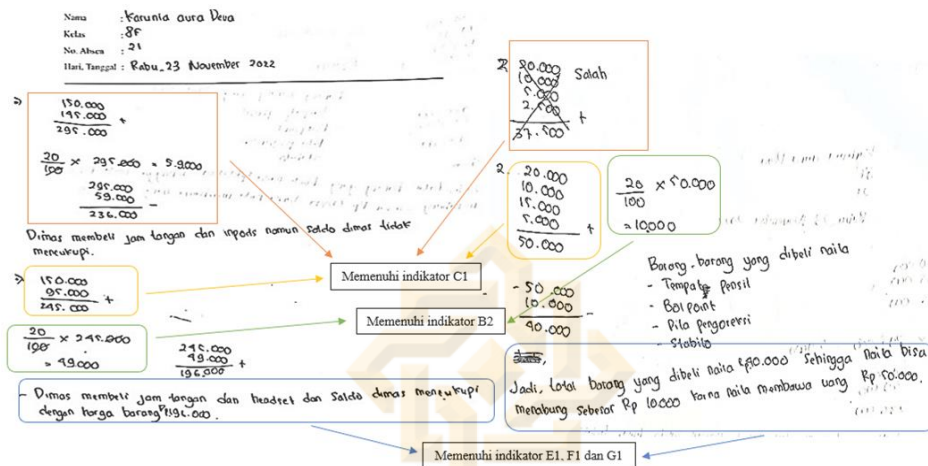 Nama : Karunia aura Deva
Kelas : 8F
No. Absen : 21
Hari, Tanggal : Rabu, 23 November 2022
150.000
145.000
295.000 +
20/100 × 295.000 = 59.000
295.000
59.000
236.000 −
Dimas membeli jam tangan dan inpods namun saldo dimas tidak
mencukupi.
150.000
95.000
245.000 +
20/100 × 245.000
= 49.000
245.000
49.000
196.000 +
- Dimas membeli jam tangan dan headset dan saldo dimas mencukupi
dengan harga barang Rp196.000.
2. 20.000
10.000
5.000
2.500
37.500 +
Salah
2. 20.000
10.000
15.000
5.000
50.000 +
20/100 × 50.000
= 10.000
- 50.000
10.000
40.000 −
Barang-barang yang dibeli naila
- Tempat Pensil
- Bolpoint
- Pita pengoreksi
- Stabilo
Jadi, total barang yang dibeli naila Rp40.000 sehingga naila bisa
menabung sebesar Rp 10.000 karna naila membawa uang Rp 50.000.
Memenuhi indikator C1
Memenuhi indikator B2
Memenuhi indikator E1, F1 dan G1